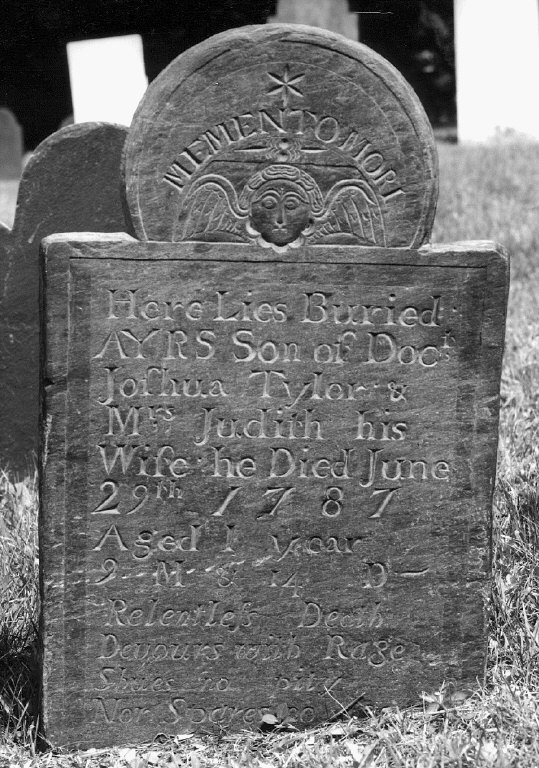 MEMENTO MORI
Here Lies Buried
AYRS Son of Doct
Joſhua Tylor &
Mrs Judith his
Wife he Died June
29th 1787
Aged 1 year
9 M & 14 D
Relentleſs Death
Devours with Rage
Shues no pity
Nor Spares no